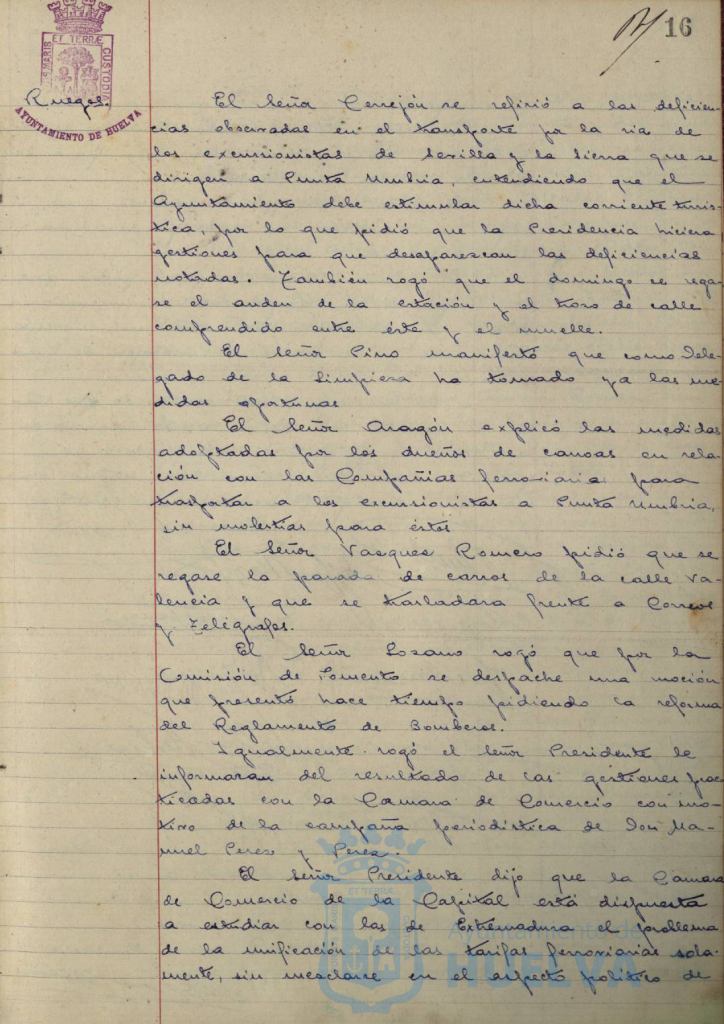 16
PORTUS MARIS ET TERRÆ CUSTODIA
AYUNTAMIENTO DE HUELVA
Ruegos.
El Señor Cerrejón se refirió a las deficien-
cias observadas en el transporte por la ria de
los excursionistas de Sevilla y la Sierra que se
dirigen a Punta Umbria, entendiendo que el
Ayuntamiento debe estimular dicha corriente turis-
tica, por lo que pidió que la Presidencia hiciera
gestiones para que desaparezcan las deficiencias
notadas. También rogó que el domingo se rega-
se el anden de la estación y el trozo de calle
comprendido entre éste y el muelle.
El Señor Pino manifestó que como Dele-
gado de la Limpieza ha tomado ya las me-
didas oportunas
El Señor Aragón explicó las medidas
adoptadas por los dueños de canoas en rela-
ción con las Compañias ferroviaria para
trasportar a los excursionistas a Punta Umbria,
sin molestias para éstos
El Señor Vazquez Romero pidió que se
regase la parada de carros de la calle Va-
lencia y que se trasladara frente a Correos
y Telégrafos.
El Señor Lozano rogó que por la
Comisión de Fomento se despache una moción
que presentó hace tiempo pidiendo la reforma
del Reglamento de Bomberos.
Igualmente rogó el Señor Presidente le
informaran del resultado de las gestiones prac-
ticadas con la Camara de Comercio con mo-
tivo de la campaña periodistica de Don Ma-
nuel Perez y Perez.
El Señor Presidente dijo que la Camara
de Comercio de la Capital está dispuesta
a estudiar con las de Extremadura el problema
de la unificación de las tarifas ferroviarias sola-
mente, sin mezclarse en el aspecto politico de
Ayuntamiento de
HUELVA